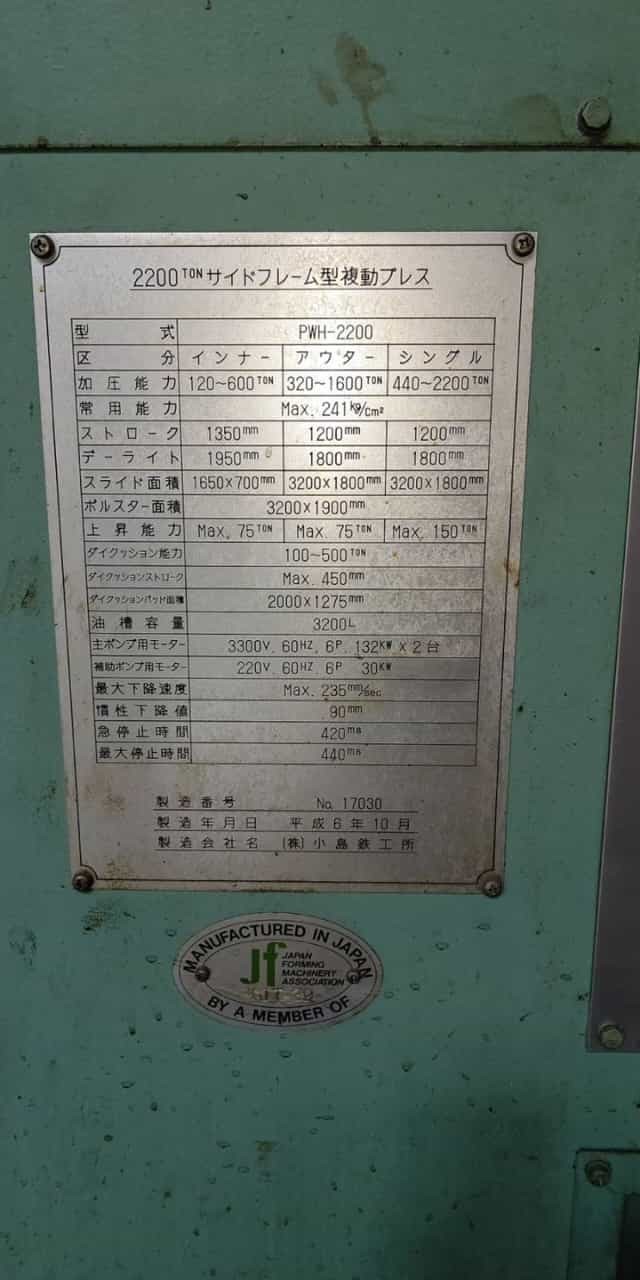 2200TONサイドフレーム型複動プレス
型 式 PWH-2200
区 分 インナー アウター シングル
加圧能力 120~600TON 320~1600TON 440~2200TON
常用能力 Max. 241kg/cm²
ストローク 1350mm 1200mm 1200mm
デーライト 1950mm 1800mm 1800mm
スライド面積 1650×700mm 3200×1800mm 3200×1800mm
ボルスター面積 3200×1900mm
上昇能力 Max. 75TON Max. 75TON Max. 150TON
ダイクッション能力 100~500TON
ダイクッションストローク Max. 450mm
ダイクッションパッド面積 2000×1275mm
油槽容量 3200L
主ポンプ用モーター 3300V. 60HZ. 6P. 132KW×2台
補助ポンプ用モーター 220V. 60HZ. 6P 30KW
最大下降速度 Max. 235mm/sec
慣性下降値 90mm
急停止時間 420ms
最大停止時間 440ms
製造番号 No. 17030
製造年月日 平成6年10月
製造会社名 (株)小島鉄工所
MANUFACTURED IN JAPAN
Jf JAPAN
FORMING
MACHINERY
ASSOCIATION
BY A MEMBER OF